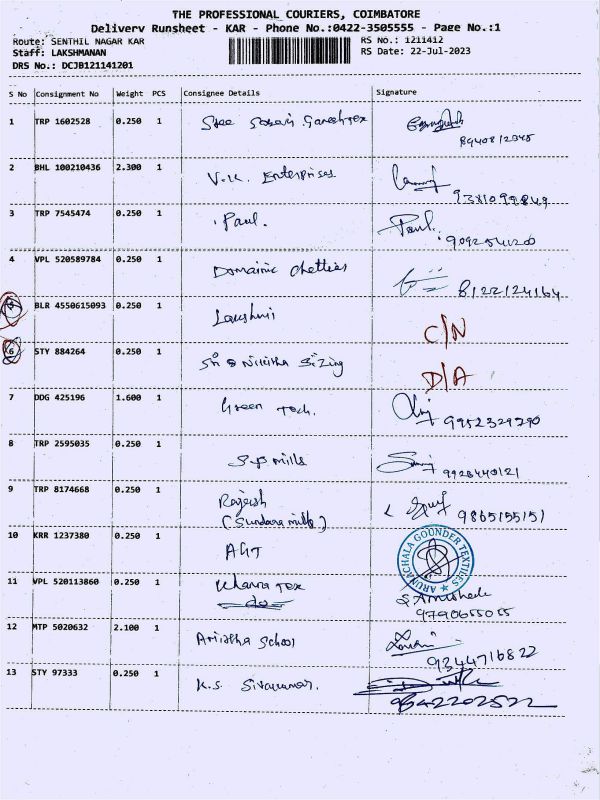 THE PROFESSIONAL COURIERS, COIMBATORE
Delivery Runsheet - KAR - Phone No.:0422-3505555 - Page No.:1
Route: SENTHIL NAGAR KAR RS No.: 1211412
Staff: LAKSHMANAN RS Date: 22-Jul-2023
DRS No.: DCJB121141201
S No Consignment No Weight PCS Consignee Details Signature
1 TRP 1602528 0.250 1 Ganesh Tex
2 BHL 100210436 2.300 1 V.K. Enterprises
9381099849
3 TRP 7545474 0.250 1 Paul. Paul.
9092541200
4 VPL 520589784 0.250 1 Domainic Chettiar
8122124164
5 BLR 4550615093 0.250 1 Lakshmi C/N
6 STY 884264 0.250 1 Sri Nikitha Sizing D/A
7 DDG 425196 1.600 1 Green Tech.
9952329790
8 TRP 2595035 0.250 1 S.P mills
9926440121
9 TRP 8174668 0.250 1 Rajesh
(Sundara mills) 9865155151
10 KRR 1237380 0.250 1 AGT
ARUNACHALA GOUNDER TEXTILES
11 VPL 520113860 0.250 1 Khanna Tex
9790655055
12 MTP 5020632 2.100 1 School
9344716822
13 STY 97333 0.250 1 K.S. Sivakumar.
9842202522